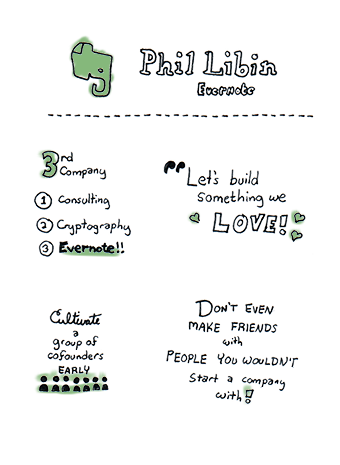 Phil Libin
Evernote
3rd
Company
1 Consulting
2 Cryptography
3 Evernote!!
"Let's build
something we
LOVE!
Cultivate
a
group of
cofounders
EARLY
DON'T EVEN
MAKE FRIENDS
with
PEOPLE YOU WOULDN'T
Start a company
with!